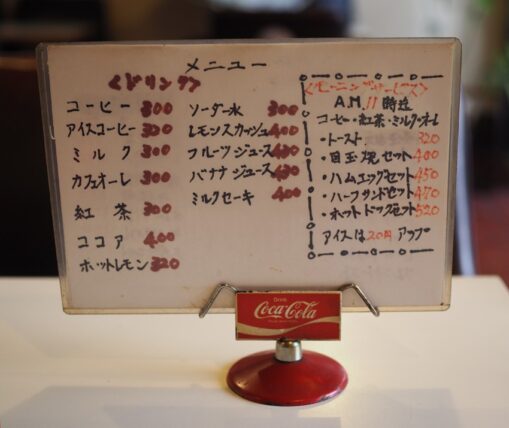 メニュー
<ドリンク>
コーヒー 300
アイスコーヒー 320
ミルク 300
カフェオーレ 300
紅茶 300
ココア 400
ホットレモン 320
ソーダー水 300
レモンスカッシュ 400
フルーツジュース 430
バナナジュース 430
ミルクセーキ 400
<モーニングサービス>
A.M.11時迄
コーヒー・紅茶・ミルク・オーレ
・トースト 320
・目玉焼セット 400
・ハムエッグセット 450
・ハーフサンドセット 470
・ホットドッグセット 520
アイスは20円アップ
Drink
Coca-Cola